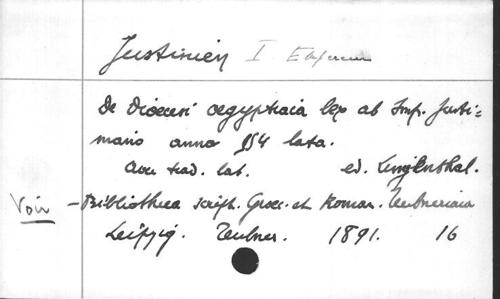 Justinien I Empereur
De Dioecesi aegyptiaca lex ab Imp. Justi-
niano anno 554 lata.
Avec trad. lat. ed. Lingenthal.
Voir - Bibliotheca script. Graec. et Roman. Teubneriana
Leipzig. Teubner. 1891. 16